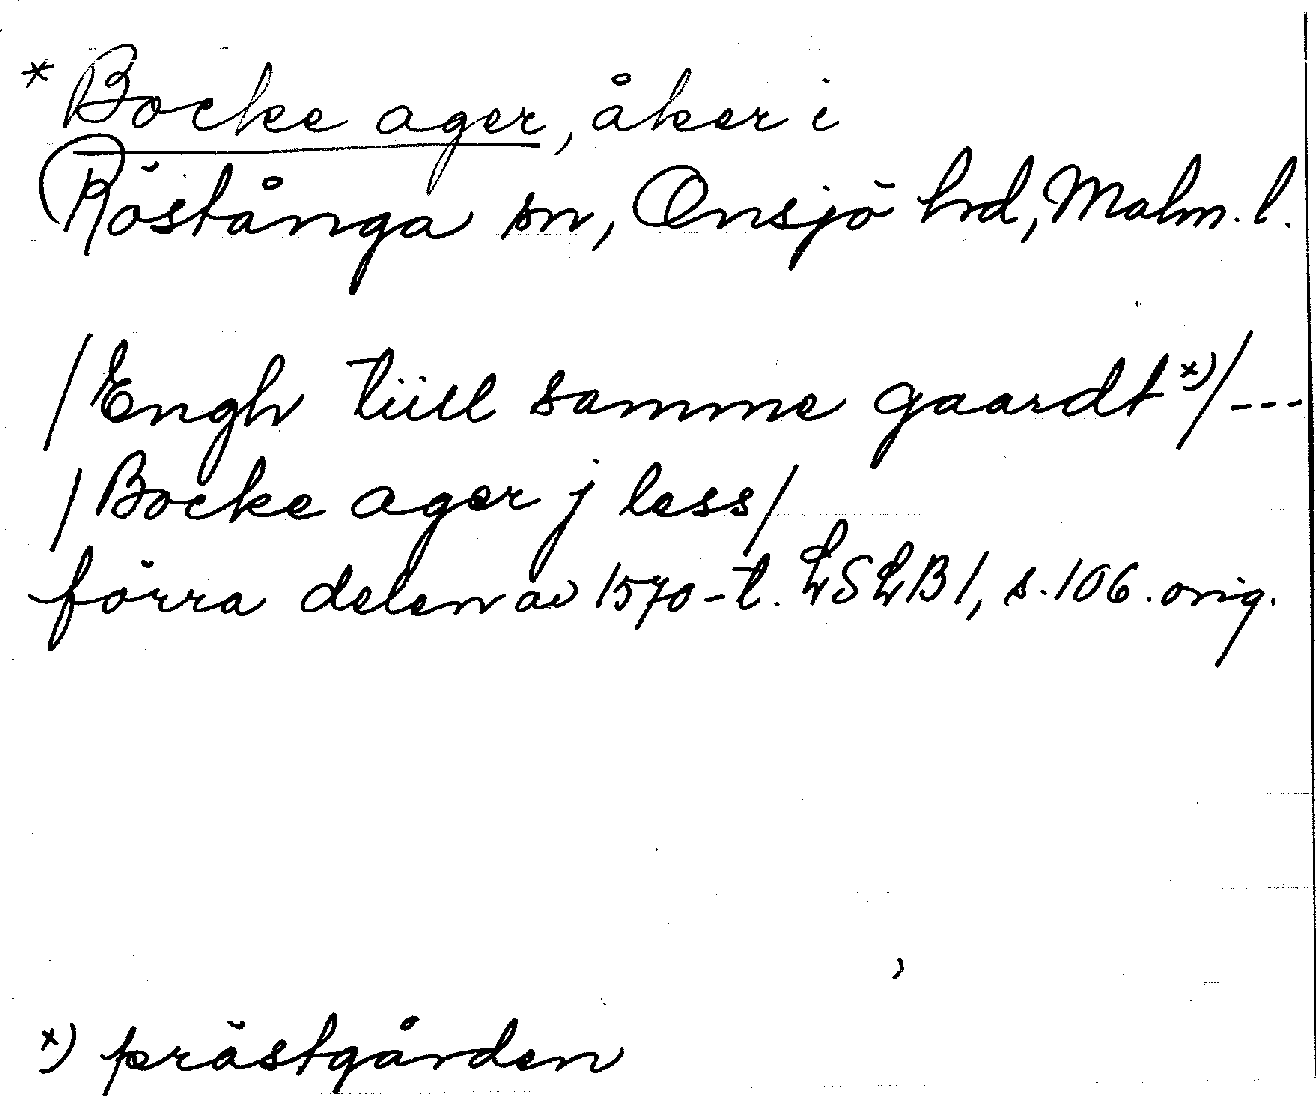 * Bocke ager, åker i
Röstånga sn, Onsjö hrd, Malm. l.
/Engh tiill samme gaardt x)/---
/Bocke ager j less/
förra delen av 1570-t. LSLB 1, s. 106. orig.
x) prästgården